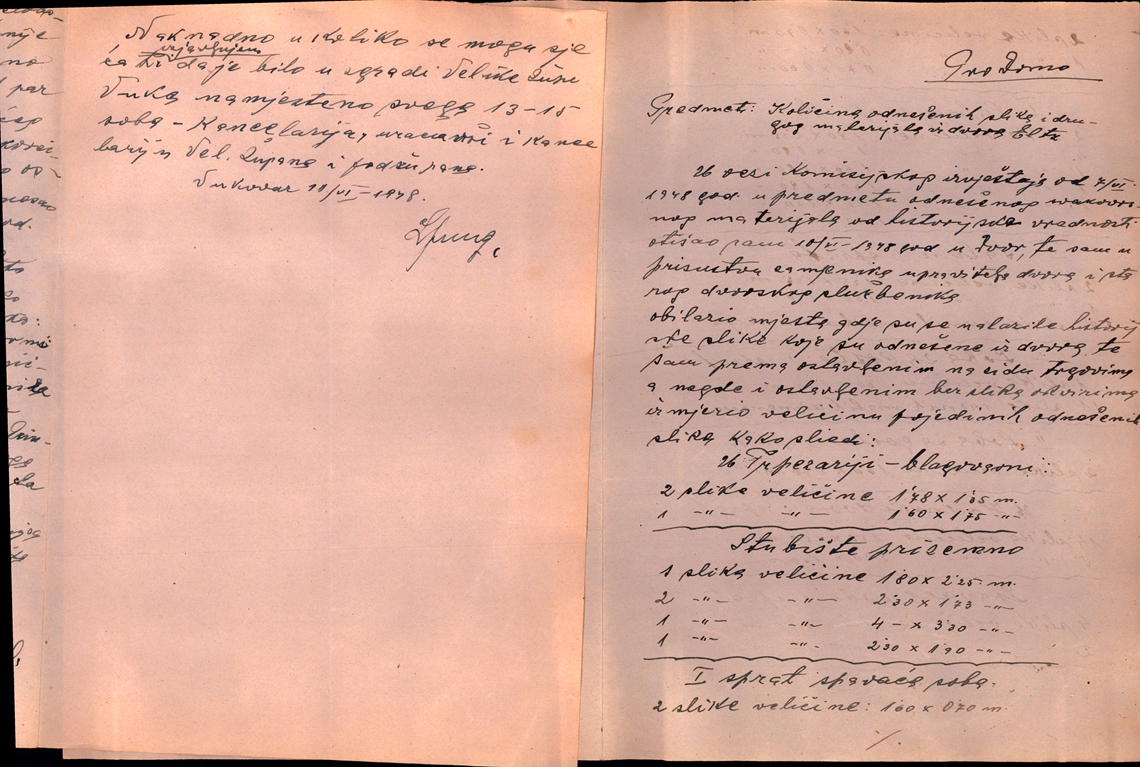 Naknadno u koliko se mogu sje
ćati izjavljujem da je bilo u zgradi Velike Župe
Vuka namješteno svega 13-15
soba - Kancelarija, uračunavši i kance
lariju Vel. Župana i podžupana.
Vukovar 11/VI-1948.
Pro Domo
Predmet: Količina odnešenih slika i dru-
gog materijala iz dvora Eltz
Iz Komisijskog izvještaja od 7/VI
1948 god. u predmetu odnešenog
nog materijala od historijske vrednosti
otišao sam 10/VI-1948 god u Dvor, te sam u
prisustvu zamjenika upravitelja dvora i sta
rog dvorskog službenika
obilazio mjesta gdje su se nalazile histori
ske slike koje su odnešene iz dvora, te
sam prema ostavljenim na zidu tragovima
a negde i ostavljenim bez slika okvirima
izmjerio veličinu pojedinih odnešenih
slika kako sliedi:
U Trpezariji - blagovaoni:
2 slike veličine 1'78 x 1'05 m.
1 -"- -"- 1'60 x 1'75 -"-
Stubište prizemno
1 slika veličine 1'80 x 2'25 m.
2 -"- -"- 2'30 x 1'73 -"-
1 -"- -"- 4 - x 3'30 -"-
1 -"- -"- 2'30 x 1'90 -"-
I sprat spavaća soba.
2 slike veličine: 1'60 x 0'70 m.
./.